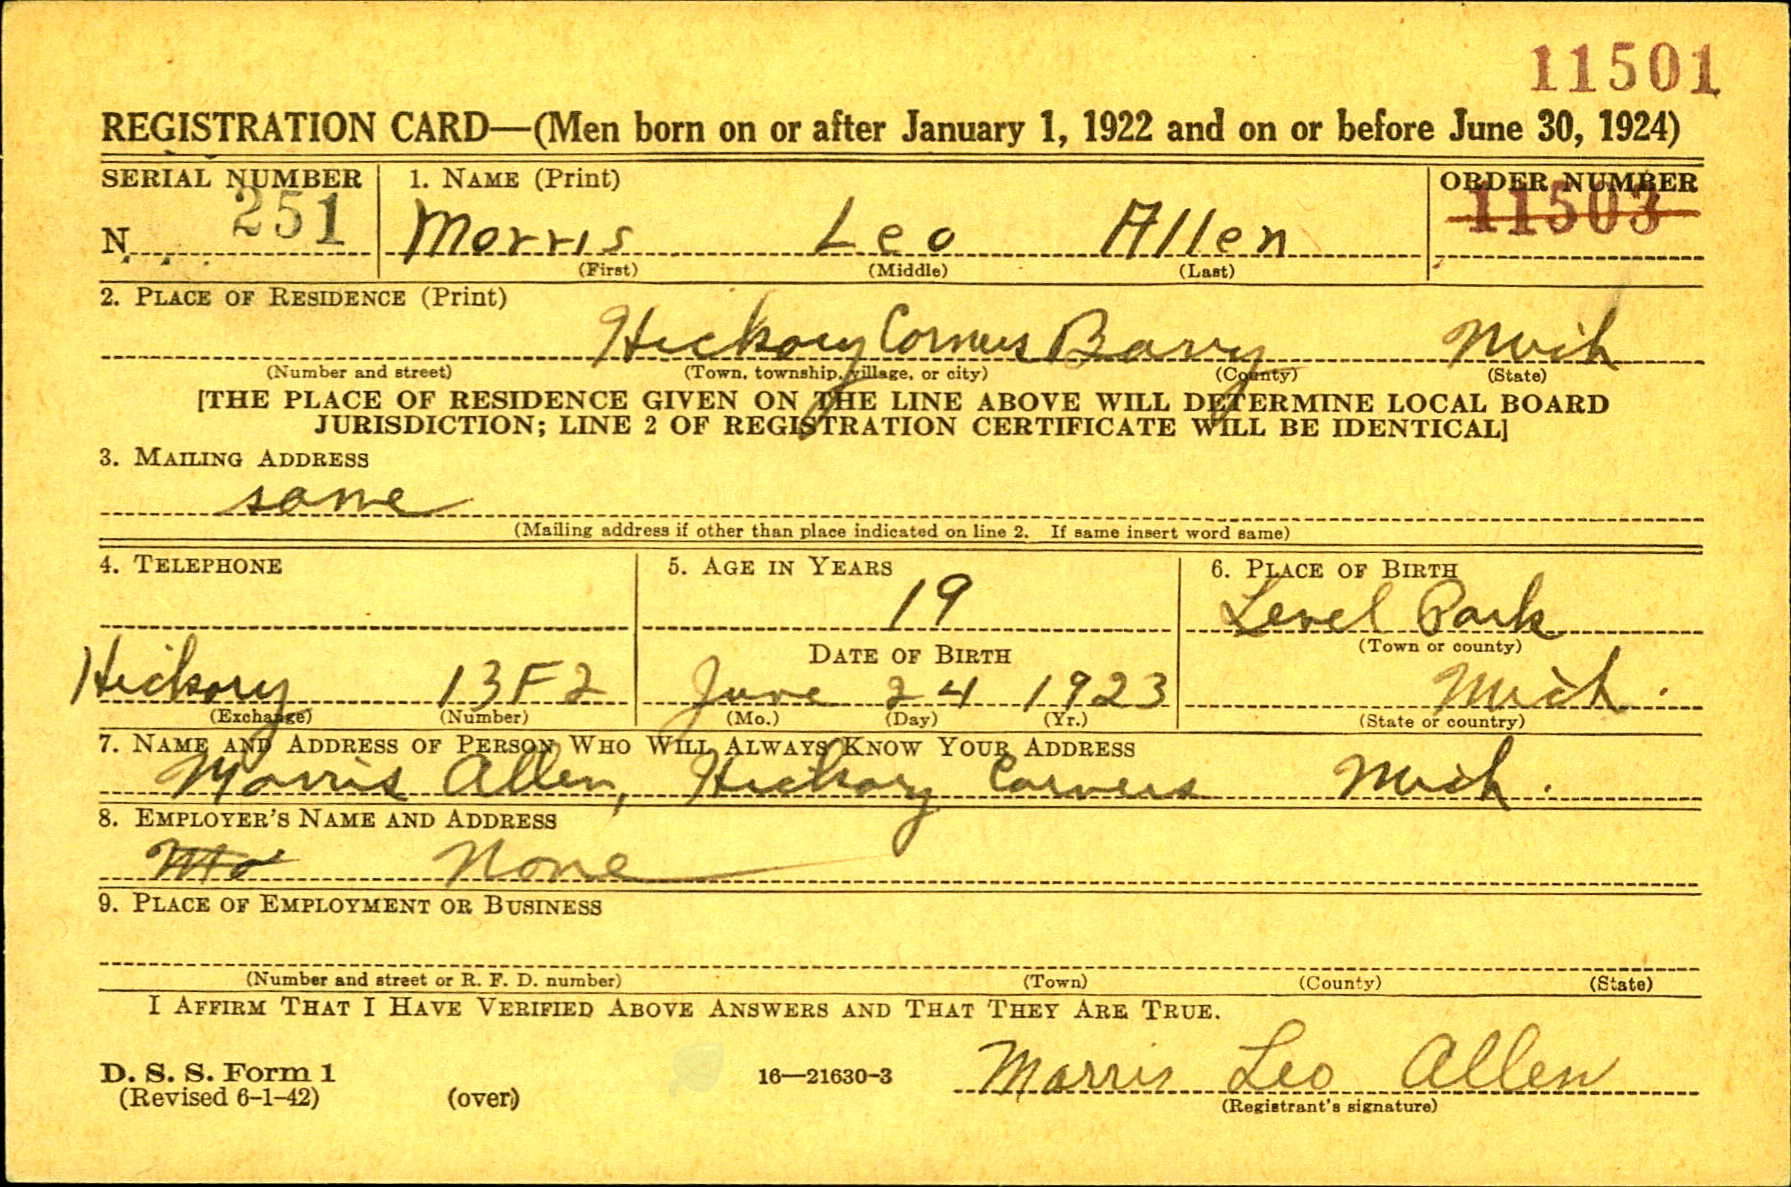 11501
REGISTRATION CARD—(Men born on or after January 1, 1922 and on or before June 30, 1924)
SERIAL NUMBER 1. NAME (Print) ORDER NUMBER
N 251 Morris Leo Allen 11503
(First) (Middle) (Last)
2. PLACE OF RESIDENCE (Print)
Hickory Corners Barry Mich
(Number and street) (Town, township, village, or city) (County) (State)
[THE PLACE OF RESIDENCE GIVEN ON THE LINE ABOVE WILL DETERMINE LOCAL BOARD
JURISDICTION; LINE 2 OF REGISTRATION CERTIFICATE WILL BE IDENTICAL]
3. MAILING ADDRESS
same
(Mailing address if other than place indicated on line 2. If same insert word same)
4. TELEPHONE 5. AGE IN YEARS 6. PLACE OF BIRTH
19 Level Park
DATE OF BIRTH (Town or county)
Hickory 13F2 June 24 1923 Mich.
(Exchange) (Number) (Mo.) (Day) (Yr.) (State or country)
7. NAME AND ADDRESS OF PERSON WHO WILL ALWAYS KNOW YOUR ADDRESS
Morris Allen, Hickory Corners Mich.
8. EMPLOYER'S NAME AND ADDRESS
None
9. PLACE OF EMPLOYMENT OR BUSINESS
(Number and street or R. F. D. number) (Town) (County) (State)
I AFFIRM THAT I HAVE VERIFIED ABOVE ANSWERS AND THAT THEY ARE TRUE.
D. S. S. Form 1 16—21630-3 Morris Leo Allen
(Revised 6-1-42) (over) (Registrant's signature)